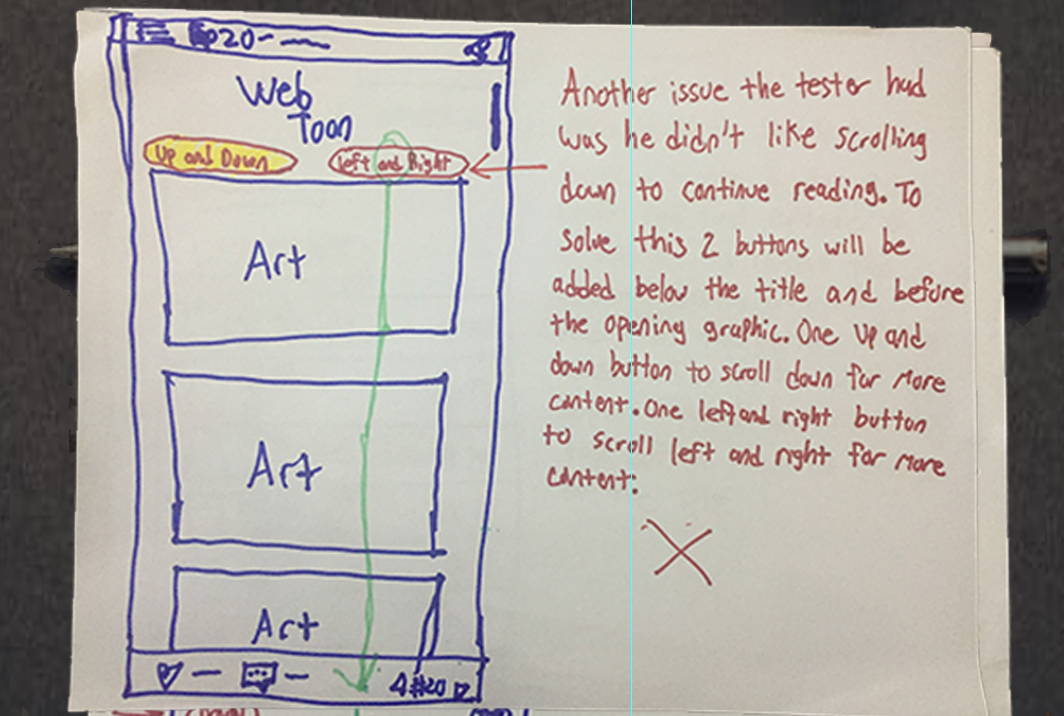 Ep20-
Web
Toon
Up and Down
Left and Right
Art
Art
Art
#20
Another issue the tester had
was he didn't like scrolling
down to continue reading. To
solve this 2 buttons will be
added below the title and before
the opening graphic. One up and
down button to scroll down for more
content. One left and right button
to scroll left and right for more
content.